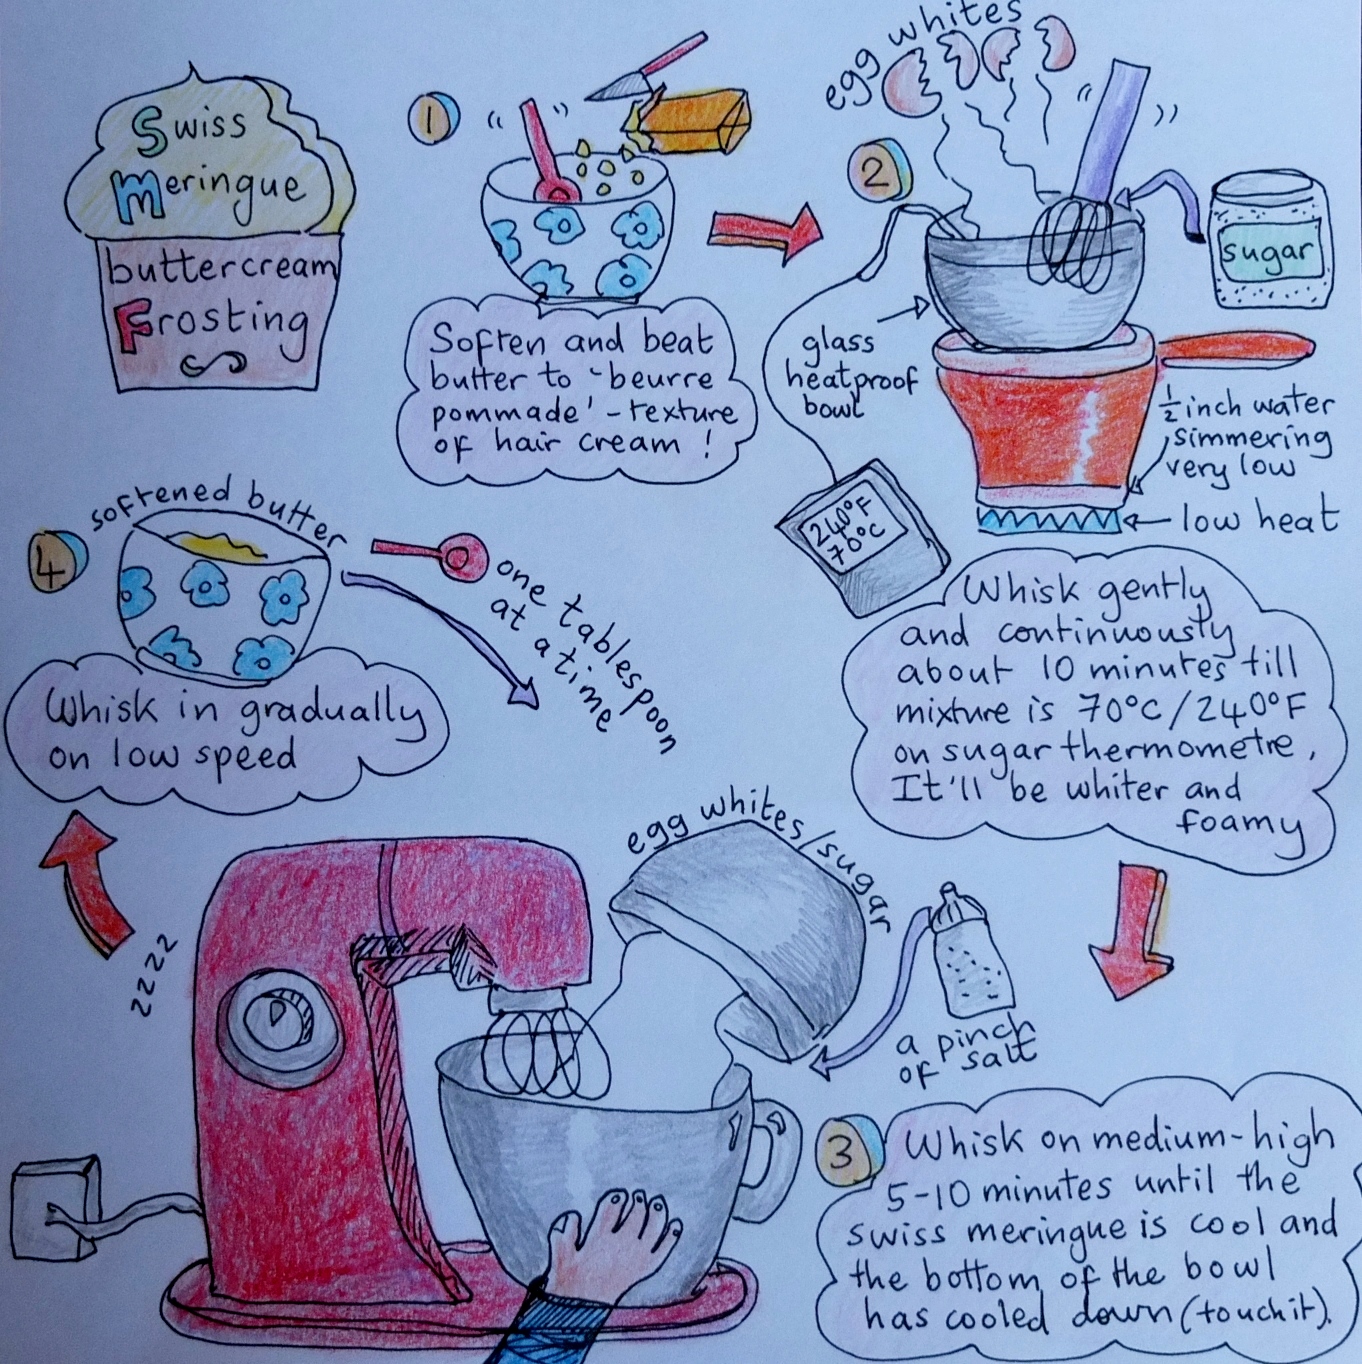 Swiss
Meringue
buttercream
Frosting
1
Soften and beat
butter to 'beurre
pommade' - texture
of hair cream!
egg whites
2
sugar
glass
heatproof
bowl
1/2 inch water
simmering
very low
low heat
240°F
70°C
Whisk gently
and continuously
about 10 minutes till
mixture is 70°C/240°F
on sugar thermometre.
It'll be whiter and
foamy
egg whites/sugar
a pinch
of salt
zzzz
3
Whisk on medium-high
5-10 minutes until the
swiss meringue is cool and
the bottom of the bowl
has cooled down (touch it).
4
softened butter
one tablespoon
at a time
Whisk in gradually
on low speed